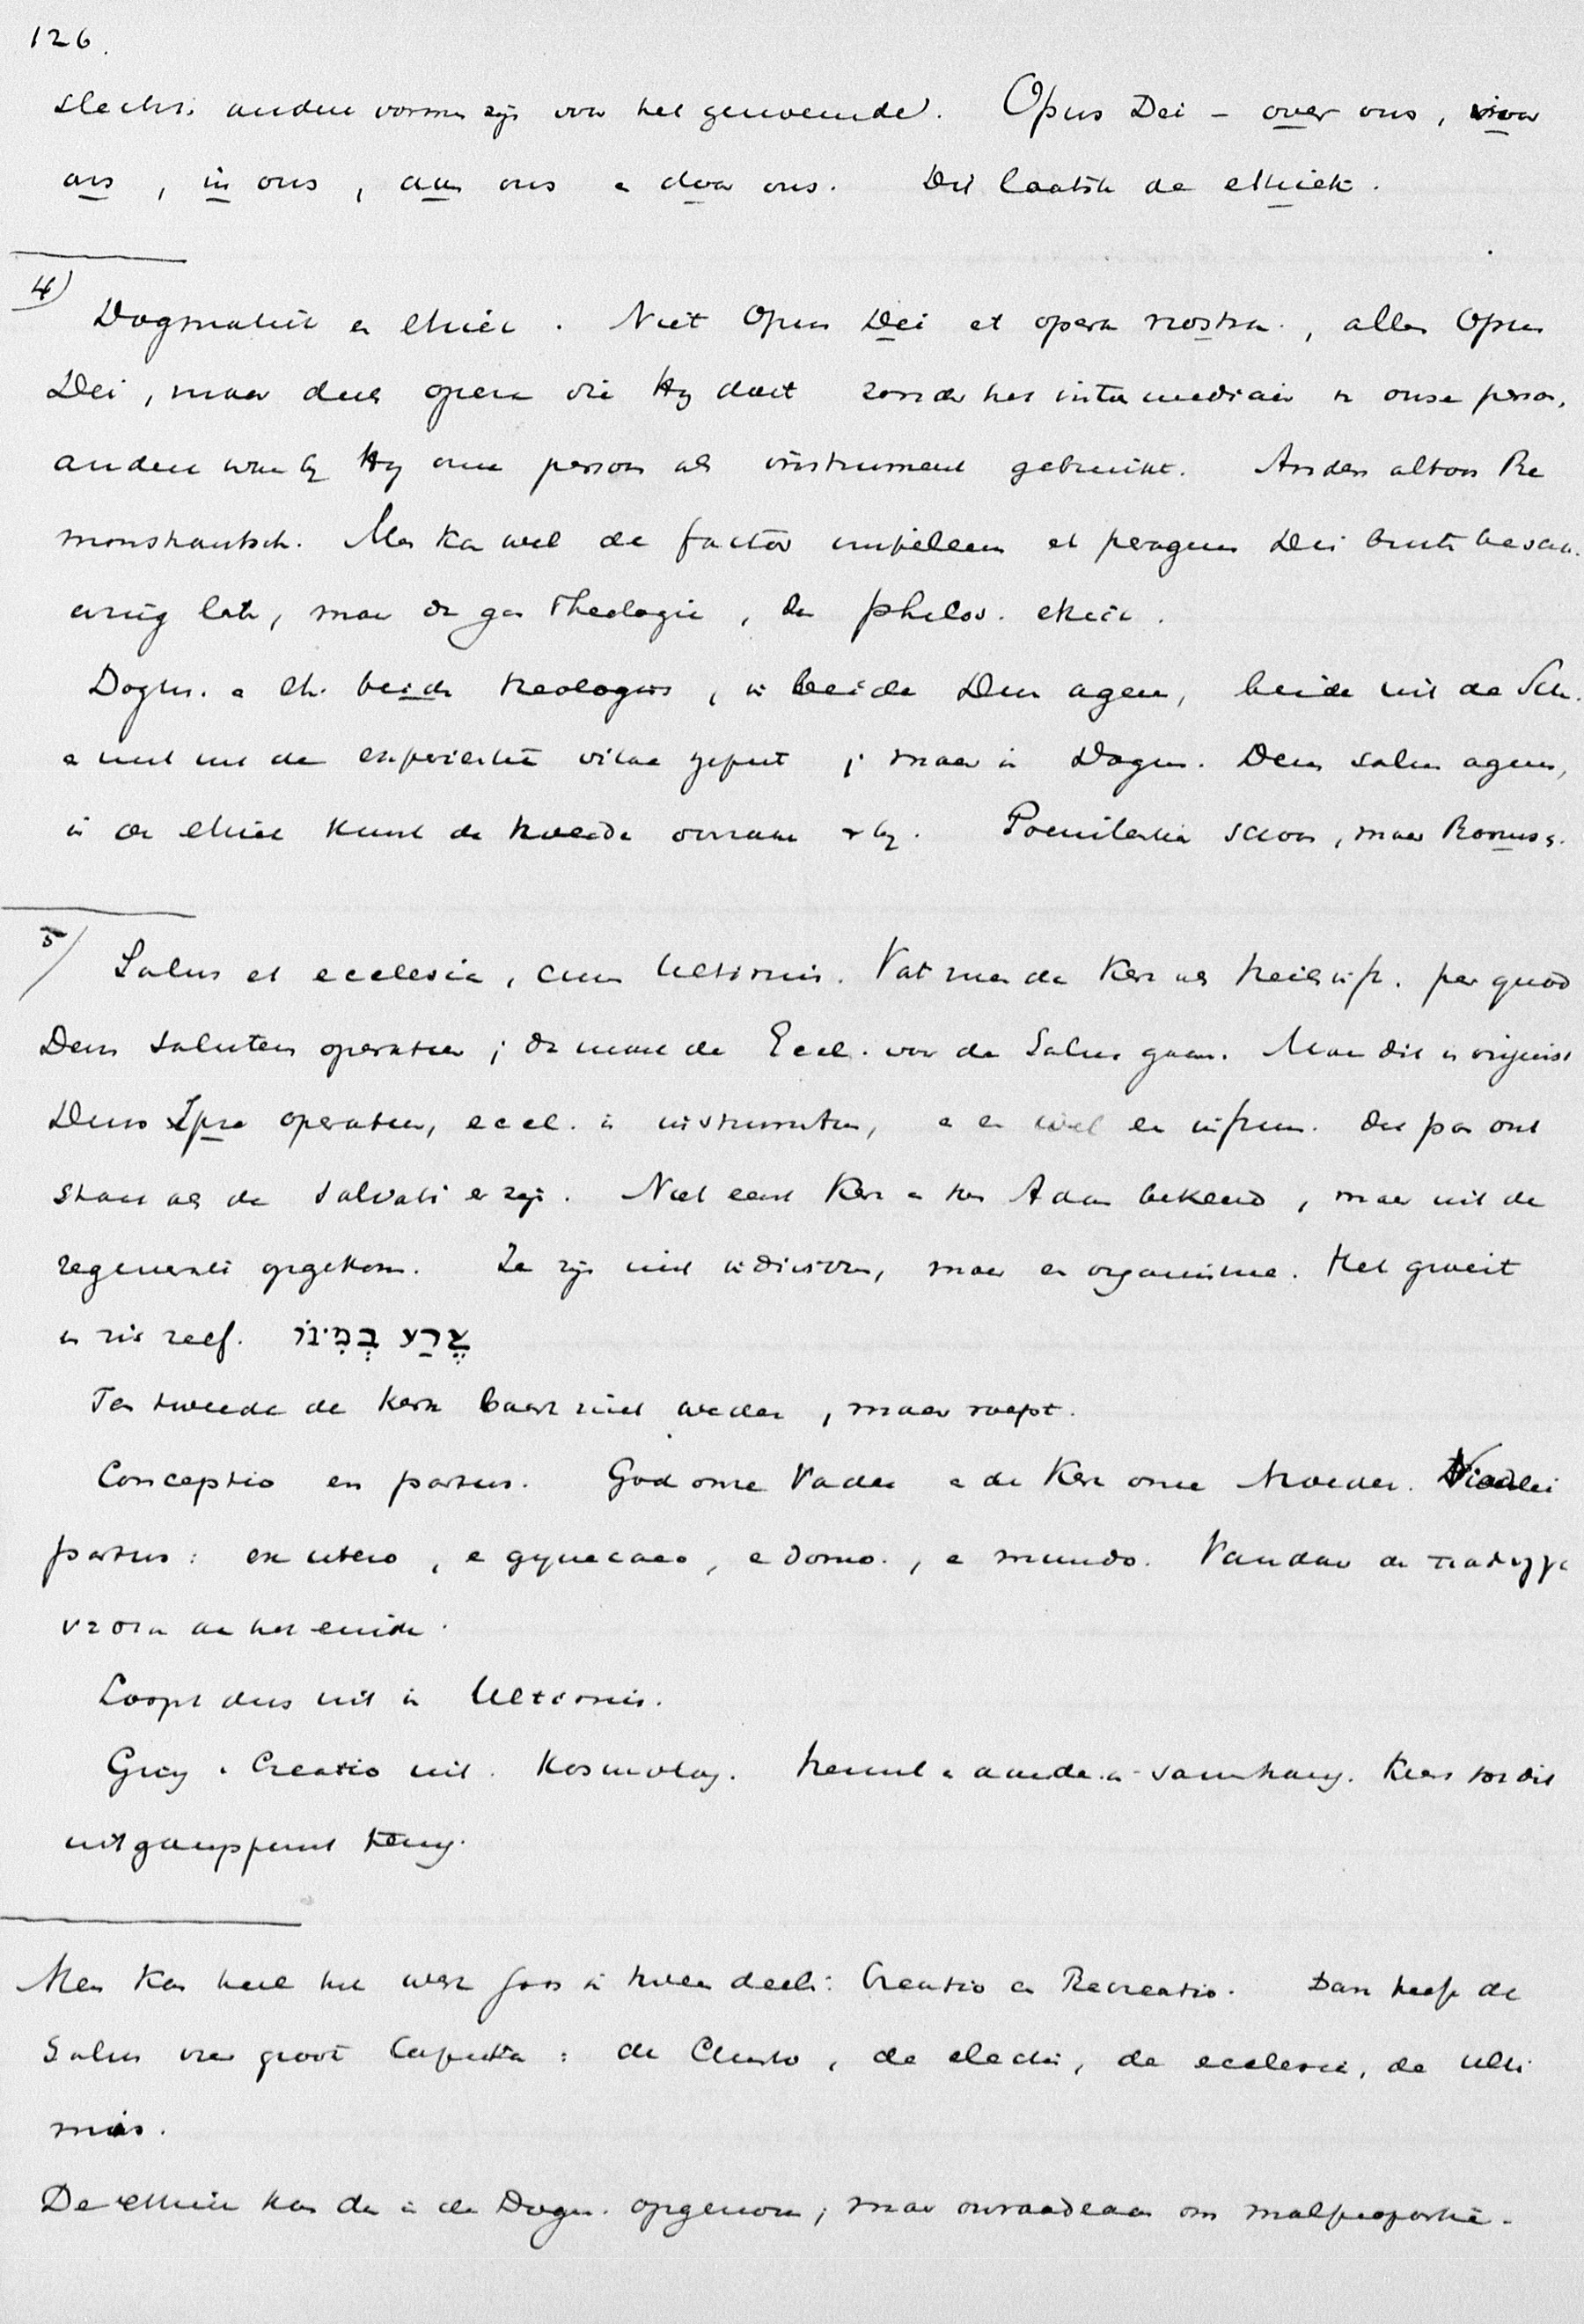 126.
slechts andere vormen zijn voor het genoemde. Opus Dei – over ons, voor
ons, in ons, aan ons en door ons. Dit laatste de ethiek.
4) Dogmatiek en ethiek. Niet Opus Dei et opera nostra, alles Opus
Dei, maar deels opera die Hy doet zonder het intermediair v. onze persoon,
andere waarbij Hy onze persoon als instrument gebruikt. Anders altoos Re
monstrantsch. Men kan wel de factor impellens et peragens Dei buiten beschou
wing laten, maar dan geen theologie, dan philos. ethiek.
Dogm. en eth. beide theologisch, in beide Deus agens, beide uit de Schr.
en niet uit de experientia vitae geput; maar in Dogm. Deus solus agens,
in de ethiek komt de tweede oorzaak erbij. Poenitentia schoon, maar Bonus
5) Salus et ecclesia, cum Ultimis. Vat men de Kerk als heilsinst. per quod
Deus salutem operatur; dan moet de Eccl. voor de Salus gaan. Maar dit is onjuist
Deus Ipse operatur, eccl. is instrumentum, en er wel een instrum. dat pas ont
staat als de salvati er zijn. Niet eerst Kerk en toen Adam bekeerd, maar uit de
regenerati opgekomen. Ze zijn niet individuen, maar een organisme. Het groeit
in zich zelf. זֶרַע בְּמִינוֹ
Ten tweede de Kerk baart niet weder, maar roept.
Conceptio en partus. God onze Vader en de Kerk onze Moeder. Vierderlei
partus: ex utero, e gynecaeo, e domo, e mundo. Vandaar de παλιγγε
νεσια aan het einde.
Loopt dus uit in Ultimis.
Ging v. Creatio uit. Kosmolog. hemel en aarde in samenhang. Keert tot dit
uitgangspunt terug.
Men kan heel het werk Gods in twee deelen: Creatio en Recreatio. Dan heeft de
Salus vier groote Capita: de Christo, de electis, de ecclesia, de ulti
mis.
De ethiek kan dan in de Dogm. opgenomen; maar onraadzaam om malproportie.